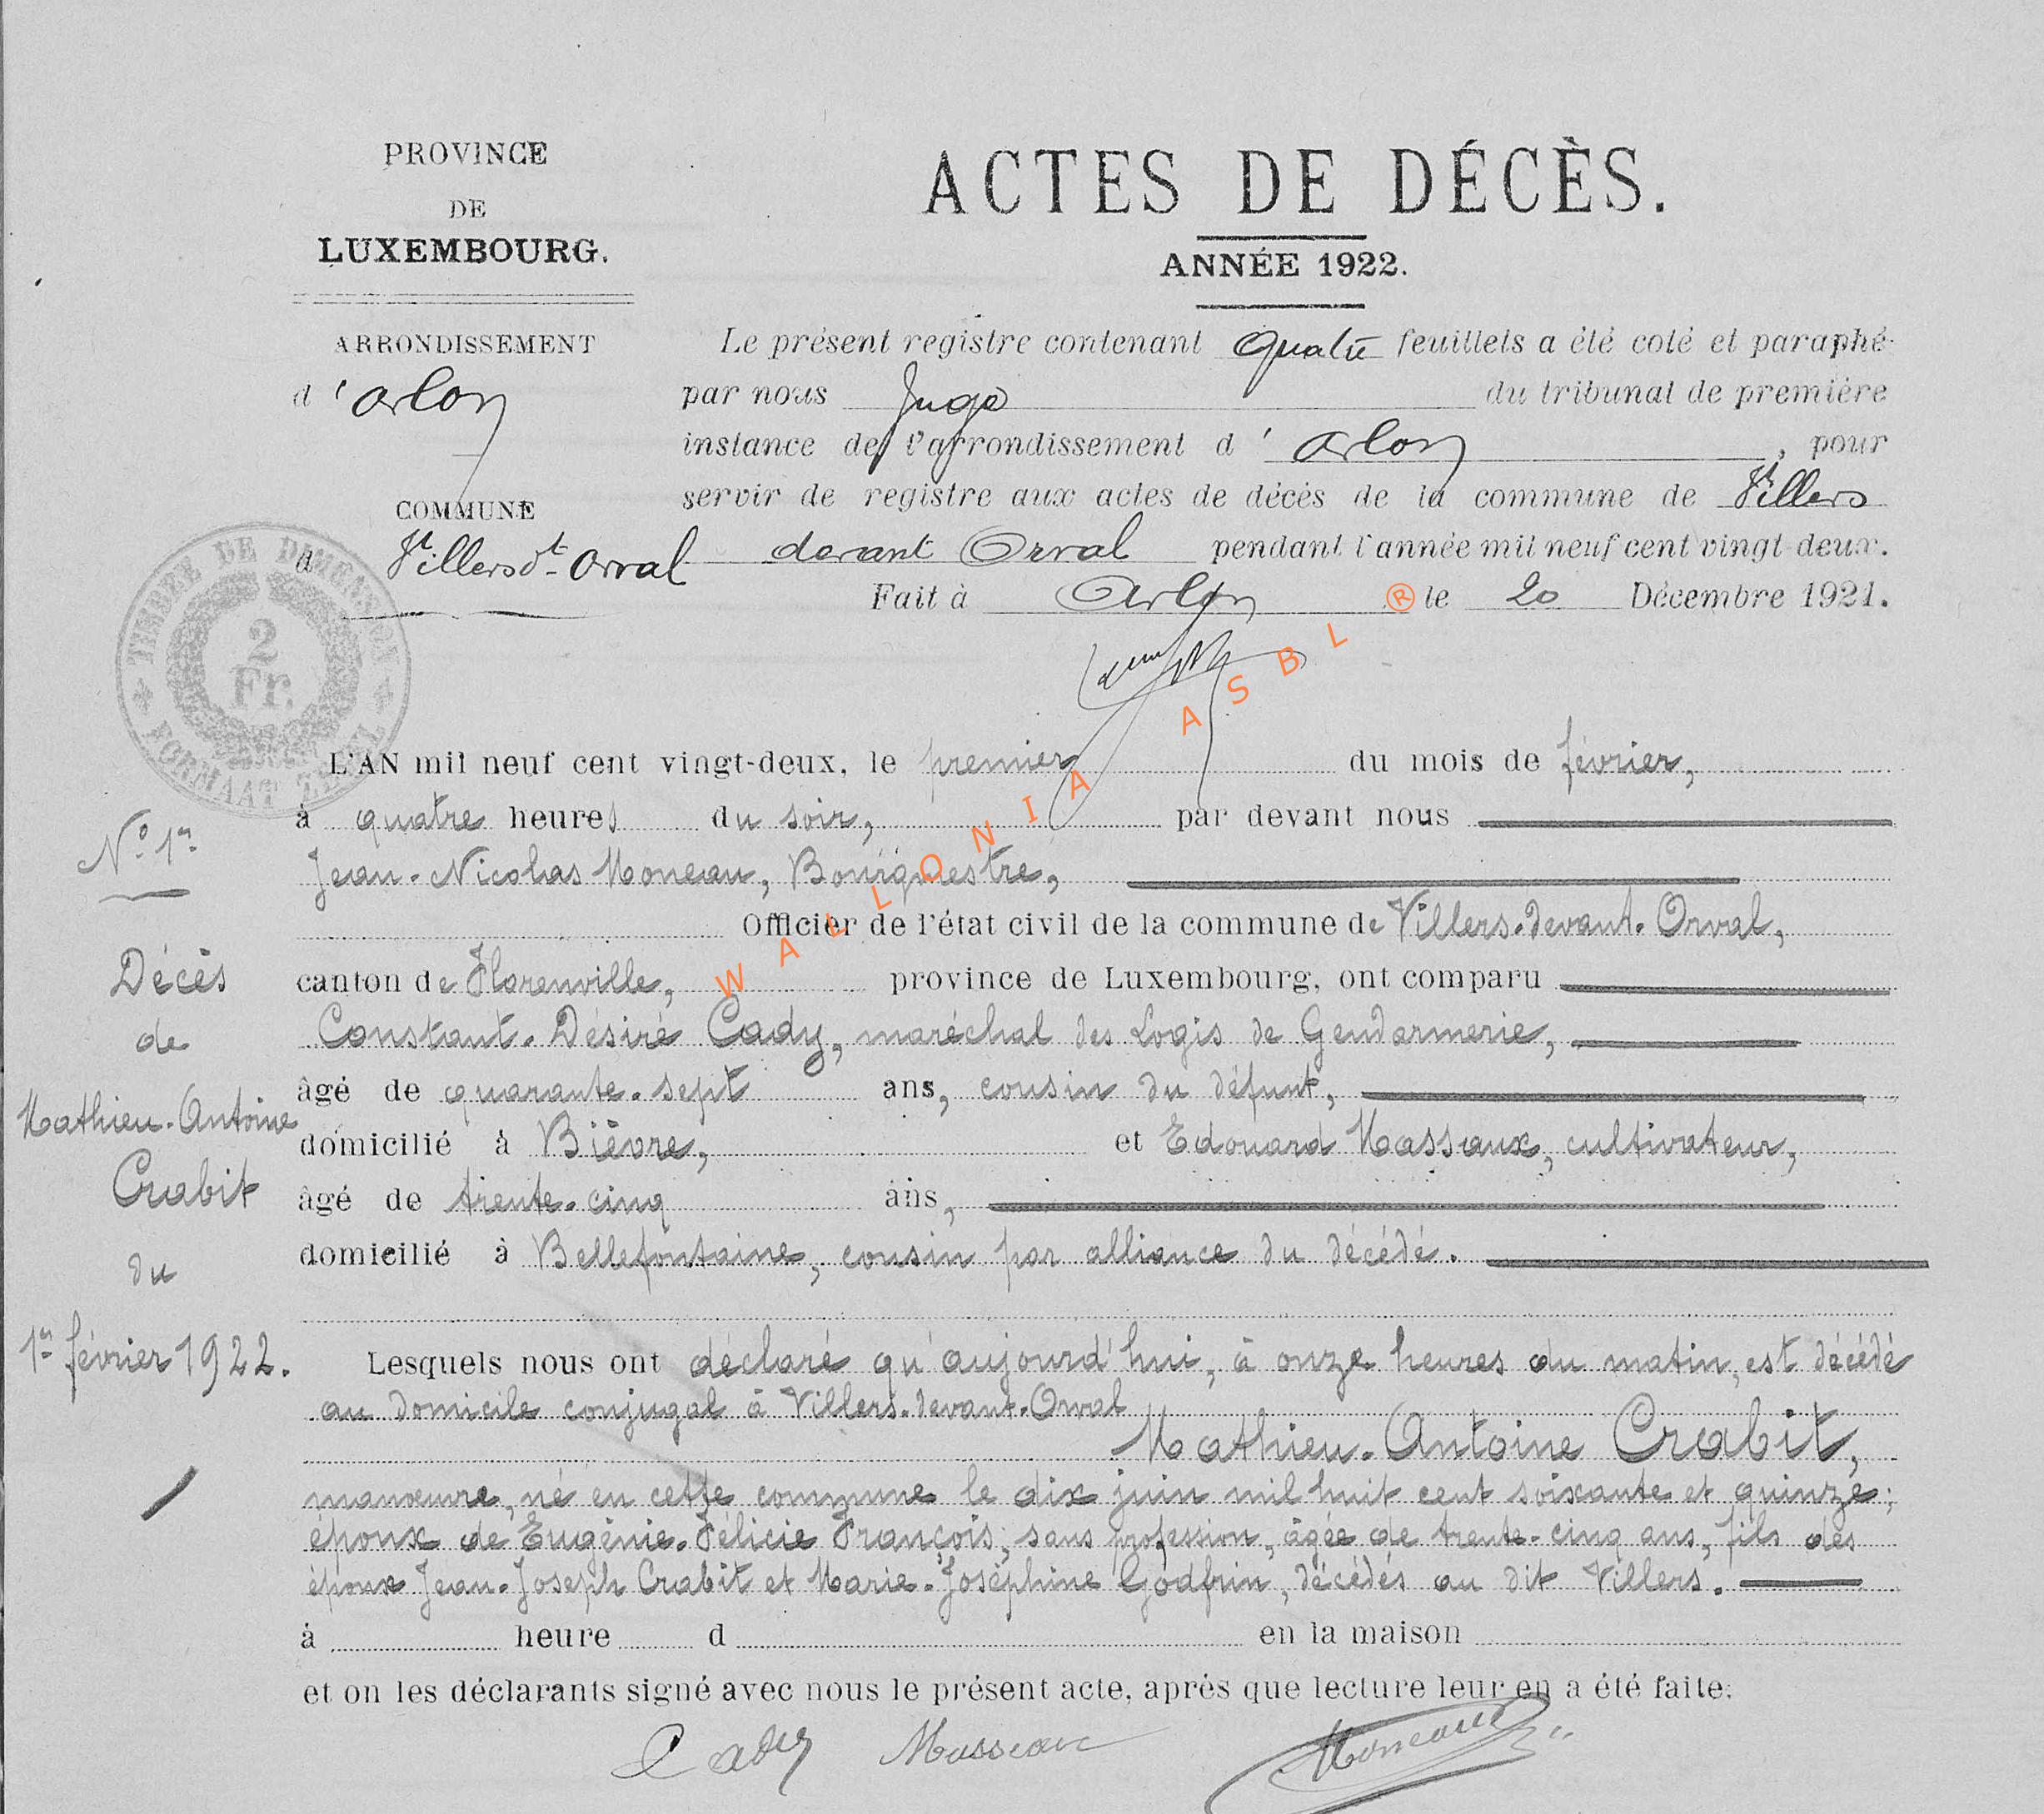 PROVINCE
DE
LUXEMBOURG.
ARRONDISSEMENT
d'Arlon
COMMUNE
d Villers dt Orval
TIMBRE DE DIMENSION
2
Fr.
FORMAAT ZEGEL
ACTES DE DÉCÈS.
ANNÉE 1922.
Le présent registre contenant quatre feuillets a été coté et paraphé
par nous Juge du tribunal de première
instance de l'arrondissement d'Arlon, pour
servir de registre aux actes de décès de la commune de Villers
devant Orval pendant l'année mil neuf cent vingt-deux.
Fait à Arlon le 20 Décembre 1921.
WALLONIA ASBL ®
N° 1er
Décès
de
Mathieu-Antoine
Crabit
du
1er février 1922.
L'AN mil neuf cent vingt-deux, le premier du mois de février,
à quatre heures du soir, par devant nous
Jean-Nicolas Moneau, Bourgmestre,
Officier de l'état civil de la commune de Villers-devant-Orval,
canton de Florenville, province de Luxembourg, ont comparu
Constant-Désiré Cady, maréchal des Logis de Gendarmerie,
âgé de quarante-sept ans, cousin du défunt,
domicilié à Bièvre, et Edouard Massaux, cultivateur,
âgé de trente-cinq ans,
domicilié à Bellefontaine, cousin par alliance du décédé.
Lesquels nous ont déclaré qu'aujourd'hui, à onze heures du matin, est décédé
au domicile conjugal à Villers-devant-Orval
Mathieu-Antoine Crabit,
manœuvre, né en cette commune le dix juin mil huit cent soixante et quinze;
époux de Eugénie-Félicie François, sans profession, âgée de trente-cinq ans, fils des
époux Jean-Joseph Crabit et Marie-Joséphine Godfrin, décédés au dit Villers.
à heure d en la maison
et on les déclarants signé avec nous le présent acte, après que lecture leur en a été faite.
Cady Massaux Moneau